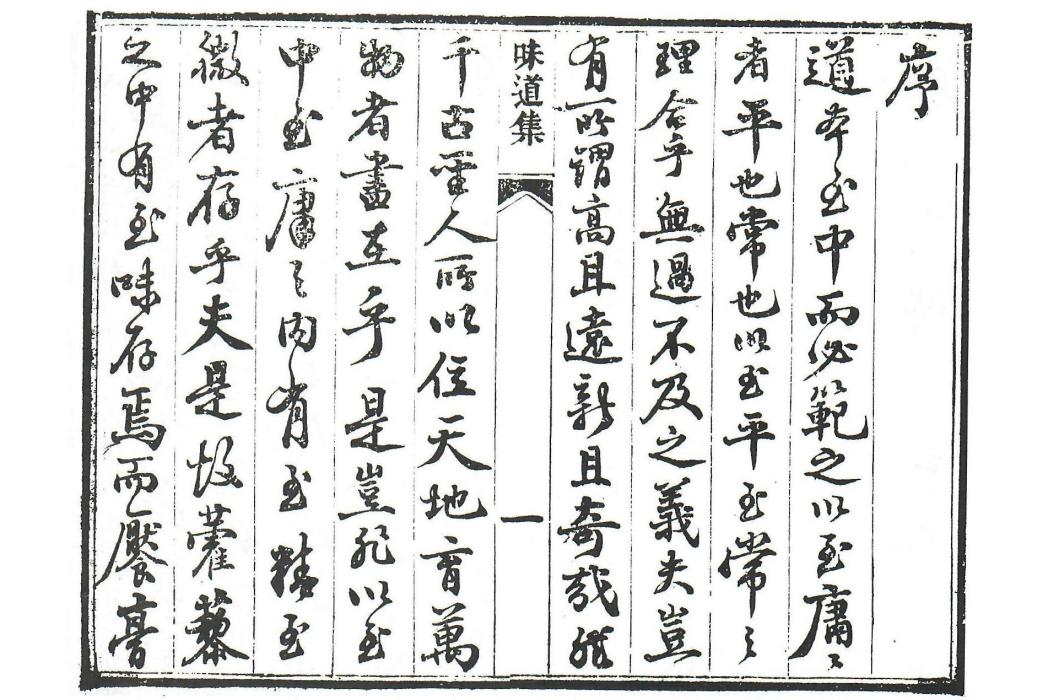 序
道本至中而必範之以至庸〻
者平也常也以至平至常之
理合乎無過不及之義夫豈
有所謂高且遠新且奇哉然
味道集
一
千古聖人所以位天地育萬
物者盡在乎是豈非以至
中至庸之內有至精至
微者存乎夫是故藿藜
之中有至味存焉而饜膏